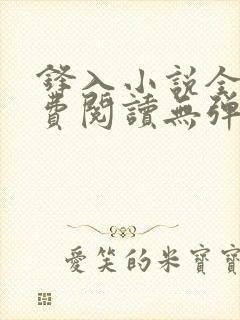 鋒入小说全
費閱讀無彈
愛笑的米寶寶